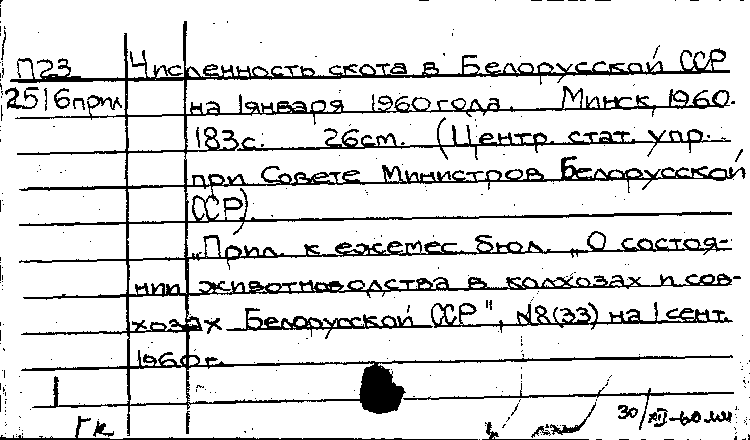 П23 Численность скота в Белорусской ССР
2516прил на 1 января 1960 года. Минск, 1960.
183с. 26cm. (Центр. стат. упр.
при Совете Министров Белорусской
ССР).
„Прил. к ежемес. бюл. „О состоя-
нии животноводства в колхозах и сов-
хозах Белорусской ССР", №8(33) на 1 сент.
1960г.
1
Гк
30/XII-60